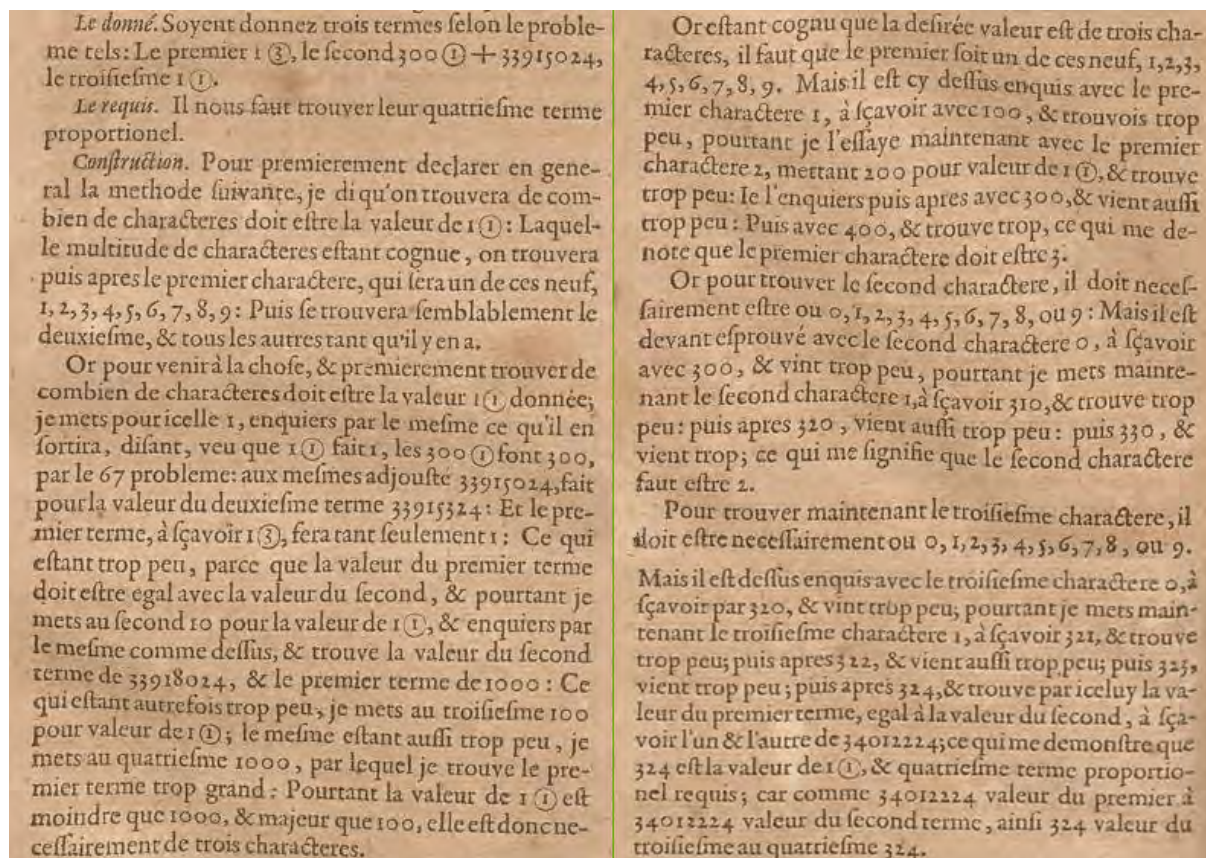 Le donné. Soyent donnez trois termes ſelon le proble-
me tels: Le premier 1 ③, le ſecond 300 ① + 33915024,
le troiſieſme 1 ①.
Le requis. Il nous faut trouver leur quatrieſme terme
proportionel.
Conſtruction. Pour premierement declarer en gene-
ral la methode ſuivante, je di qu'on trouvera de com-
bien de characteres doit eſtre la valeur de 1 ①: Laquel-
le multitude de characteres eſtant cognue, on trouvera
puis apres le premier charactere, qui ſera un de ces neuf,
1, 2, 3, 4, 5, 6, 7, 8, 9: Puis ſe trouvera ſemblablement le
deuxieſme, & tous les autres tant qu'il y en a.
Or pour venir à la choſe, & premierement trouver de
combien de characteres doit eſtre la valeur 1 ① donnée;
je mets pour icelle 1, enquiers par le meſme ce qu'il en
ſortira, diſant, veu que 1 ① fait 1, les 300 ① font 300,
par le 67 probleme: aux meſmes adjouſté 33915024, fait
pour la valeur du deuxieſme terme 33915324: Et le pre-
mier terme, à ſçavoir 1 ③, fera tant ſeulement 1: Ce qui
eſtant trop peu, parce que la valeur du premier terme
doit eſtre egal avec la valeur du ſecond, & pourtant je
mets au ſecond 10 pour la valeur de 1 ①, & enquiers par
le meſme comme deſſus, & trouve la valeur du ſecond
terme de 33918024, & le premier terme de 1000: Ce
qui eſtant autrefois trop peu, je mets au troiſieſme 100
pour valeur de 1 ①; le meſme eſtant auſſi trop peu, je
mets au quatrieſme 1000, par lequel je trouve le pre-
mier terme trop grand: Pourtant la valeur de 1 ① eſt
moindre que 1000, & majeur que 100, elle eſt donc ne-
ceſſairement de trois characteres.
Or eſtant cognu que la deſirée valeur eſt de trois cha-
racteres, il faut que le premier ſoit un de ces neuf, 1, 2, 3,
4, 5, 6, 7, 8, 9. Mais il eſt cy deſſus enquis avec le pre-
mier charactere 1, à ſçavoir avec 100, & trouvois trop
peu, pourtant je l'eſſaye maintenant avec le premier
charactere 2, mettant 200 pour valeur de 1 ①, & trouve
trop peu: Ie l'enquiers puis apres avec 300, & vient auſſi
trop peu: Puis avec 400, & trouve trop, ce qui me de-
note que le premier charactere doit eſtre 3.
Or pour trouver le ſecond charactere, il doit neceſ-
ſairement eſtre ou 0, 1, 2, 3, 4, 5, 6, 7, 8, ou 9: Mais il eſt
devant eſprouvé avec le ſecond charactere 0, à ſçavoir
avec 300, & vint trop peu, pourtant je mets mainte-
nant le ſecond charactere 1, à ſçavoir 310, & trouve trop
peu: puis apres 320, vient auſſi trop peu: puis 330, &
vient trop; ce qui me ſignifie que le ſecond charactere
faut eſtre 2.
Pour trouver maintenant le troiſieſme charactere, il
doit eſtre neceſſairement ou 0, 1, 2, 3, 4, 5, 6, 7, 8, ou 9.
Mais il eſt deſſus enquis avec le troiſieſme charactere 0, à
ſçavoir par 320, & vint trop peu; pourtant je mets main-
tenant le troiſieſme charactere 1, à ſçavoir 321, & trouve
trop peu; puis apres 322, & vient auſſi trop peu; puis 323,
vient trop peu; puis apres 324, & trouve par iceluy la va-
leur du premier terme, egal à la valeur du ſecond, à ſça-
voir l'un & l'autre de 34012224; ce qui me demonſtre que
324 eſt la valeur de 1 ①, & quatrieſme terme proportio-
nel requis; car comme 34012224 valeur du premier à
34012224 valeur du ſecond terme, ainſi 324 valeur du
troiſieſme au quatrieſme 324.